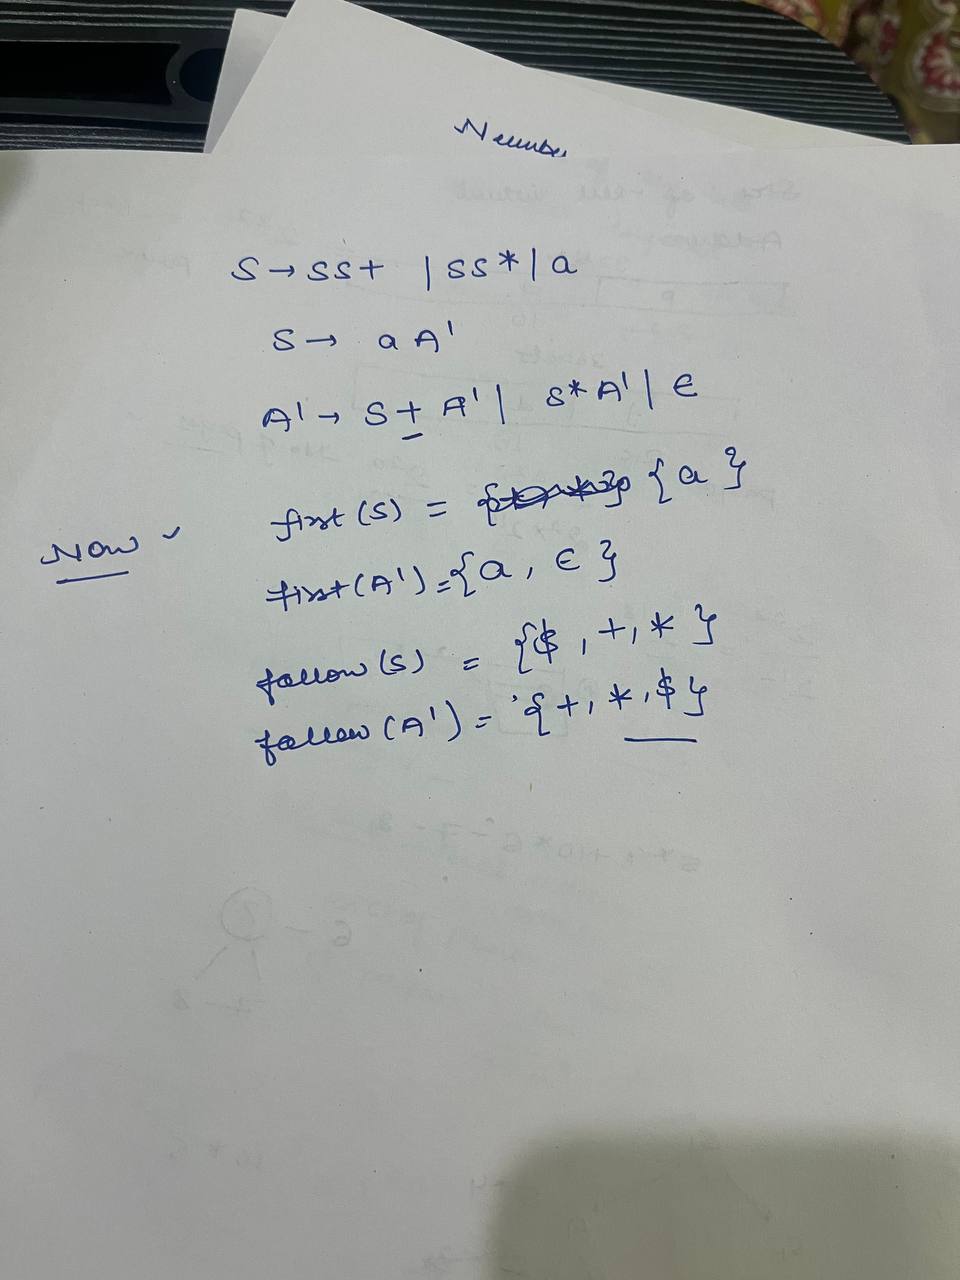 Number
S → SS+ | SS* | a
S → a A'
A' → S + A' | S* A' | ϵ
Now first (S) = {a}
first (A') = {a, ϵ}
follow (S) = {$, +, *}
follow (A') = {+, *, $}